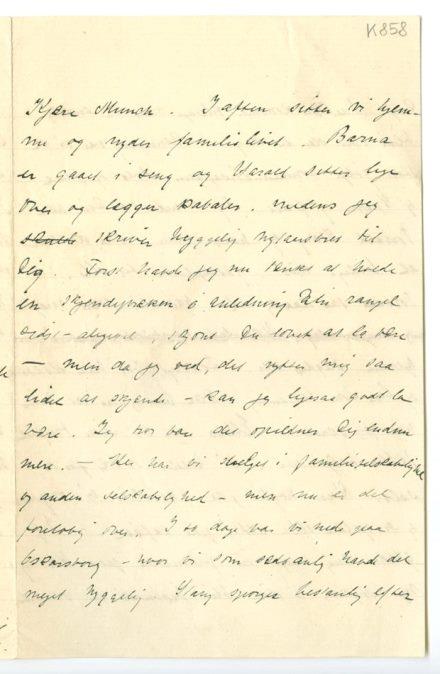 K858
Kjære Munch. I aften sitter vi hjem-
me og nyder familielivet. Barna
er gaaet i seng og Harald sitter lige
over og lægger kabaler, medens jeg
skriver hyggelig nytaarsbrev til
Dig. Først havde jeg nu tenkt at holde
en skjendepræken i anledning Din rangel
sidst – skjønt Du lovet at la være
– men da jeg ved, det nytter mig saa
lidet at skjende – kan jeg ligesaa godt la
være. Jeg tror bare det opildner Dig endnu
mere. – Her har vi i familieselskabelighed
og anden selskabelighed – men nu er det
foreløbig over. I to dage var vi nede paa
Oscarsborg – hvor vi som sedvanlig havde det
meget hyggelig. Stang spørger bestandig efter